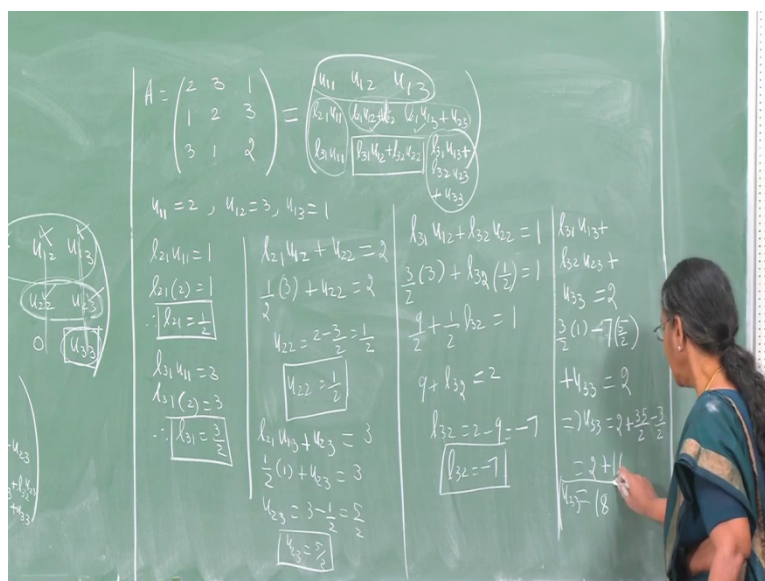 A = ( 2 3 1 ) = ( u11 u12 u13 )
( 1 2 3 ) ( l21u11 l21u12+u22 l21u13+u23 )
( 3 1 2 ) ( l31u11 l31u12+l32u22 l31u13+
l32u23
+u33 )
u11 = 2 , u12 = 3, u13 = 1
u12 u13
u22 u23
0 u33
u23
+l32u23
+u33
l21u11 = 1
l21(2) = 1
∴ l21 = 1/2
l31u11 = 3
l31(2) = 3
∴ l31 = 3/2
l21u12 + u22 = 2
1/2 (3) + u22 = 2
u22 = 2 - 3/2 = 1/2
u22 = 1/2
l21u13 + u23 = 3
1/2 (1) + u23 = 3
u23 = 3 - 1/2 = 5/2
u23 = 5/2
l31u12 + l32u22 = 1
3/2 (3) + l32 (1/2) = 1
9/2 + 1/2 l32 = 1
9 + l32 = 2
l32 = 2 - 9 = -7
l32 = -7
l31u13+
l32u23+
u33 = 2
3/2 (1) - 7(5/2)
+u33 = 2
=> u33 = 2 + 35/2 - 3/2
= 2 + 1
u33 = 18